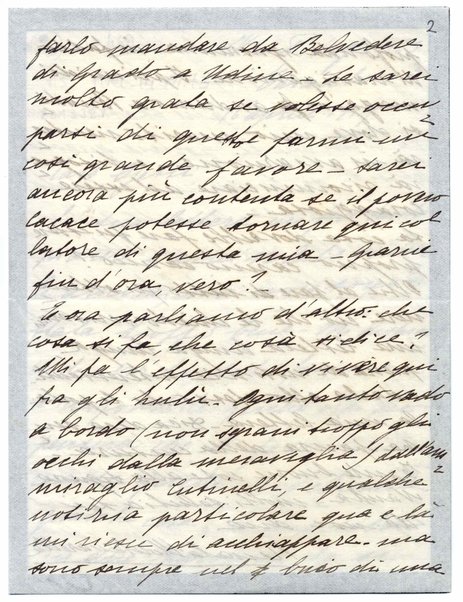 2
farlo mandare da Belvedere
di Grado a Udine - Le sarei
molto grata se volesse occu
parsi di questo farmi un
così grande favore - sarei
ancora più contenta se il povero
Cacace potesse tornare qui col
latore di questa mia -
fin d'ora, vero?
E ora parliamo d'altro: che
cosa si fa, che cosa si dice?
Mi fa l'effetto di vivere qui
fra gli zulù. Ogni tanto vado
a bordo (non sgrani troppo gli
occhi dalla meraviglia) dall'am
miraglio Cutinelli, e qualche
notizia particolare qua e là
mi riesce di acchiappare - ma
sono sempre nel buio di una